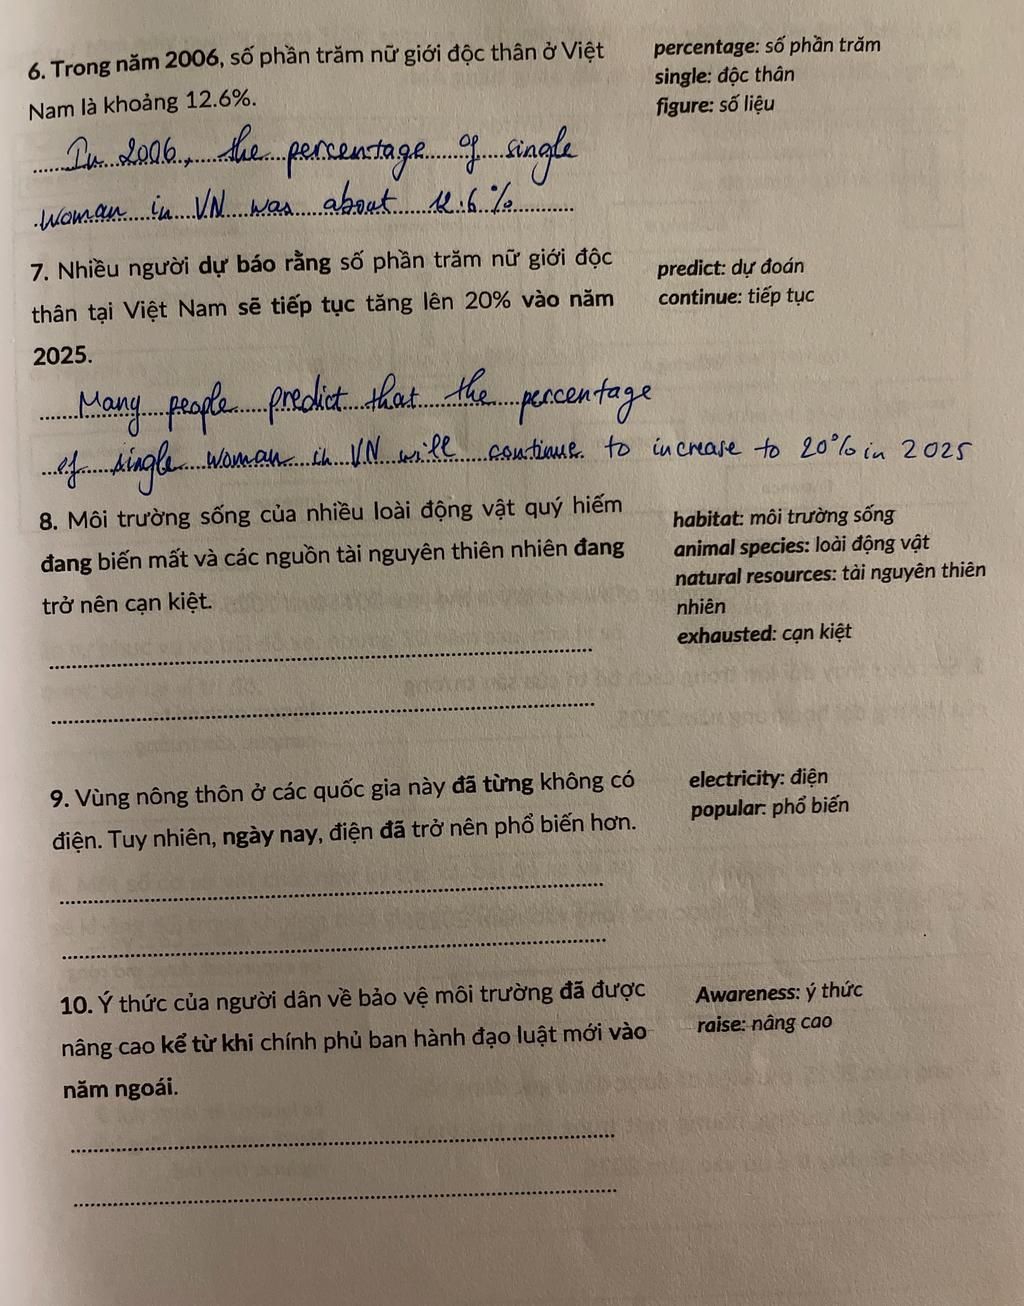 6. Trong năm 2006, số phần trăm nữ giới độc thân ở Việt
Nam là khoảng 12.6%.
percentage: số phần trăm
single: độc thân
figure: số liệu
In 2006, the percentage of single
woman in VN was about 12.6%
7. Nhiều người dự báo rằng số phần trăm nữ giới độc
thân tại Việt Nam sẽ tiếp tục tăng lên 20% vào năm
2025.
predict: dự đoán
continue: tiếp tục
Many people predict that the percentage
of single woman in VN will continue to increase to 20% in 2025
8. Môi trường sống của nhiều loài động vật quý hiếm
đang biến mất và các nguồn tài nguyên thiên nhiên đang
trở nên cạn kiệt.
habitat: môi trường sống
animal species: loài động vật
natural resources: tài nguyên thiên
nhiên
exhausted: cạn kiệt
9. Vùng nông thôn ở các quốc gia này đã từng không có
điện. Tuy nhiên, ngày nay, điện đã trở nên phổ biến hơn.
electricity: điện
popular: phổ biến
10. Ý thức của người dân về bảo vệ môi trường đã được
nâng cao kể từ khi chính phủ ban hành đạo luật mới vào
năm ngoái.
Awareness: ý thức
raise: nâng cao